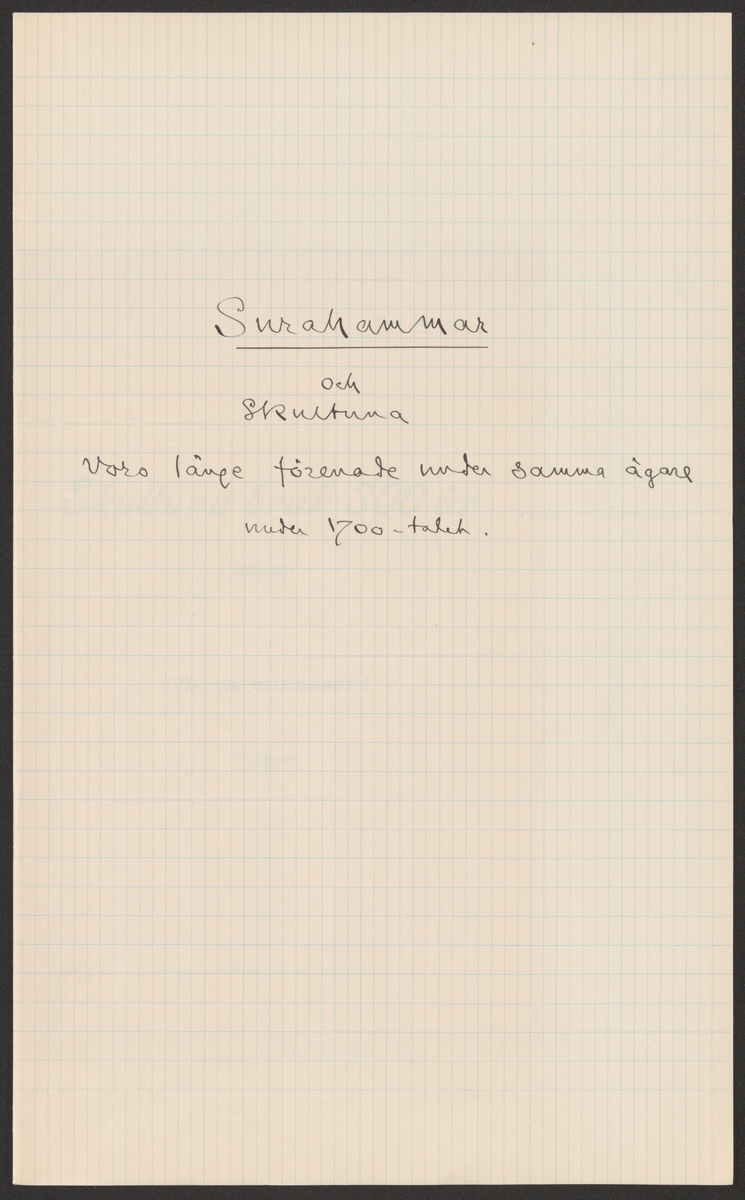 Surahammar
och
Skultuna
voro länge förenade under samma ägare
under 1700-talet.